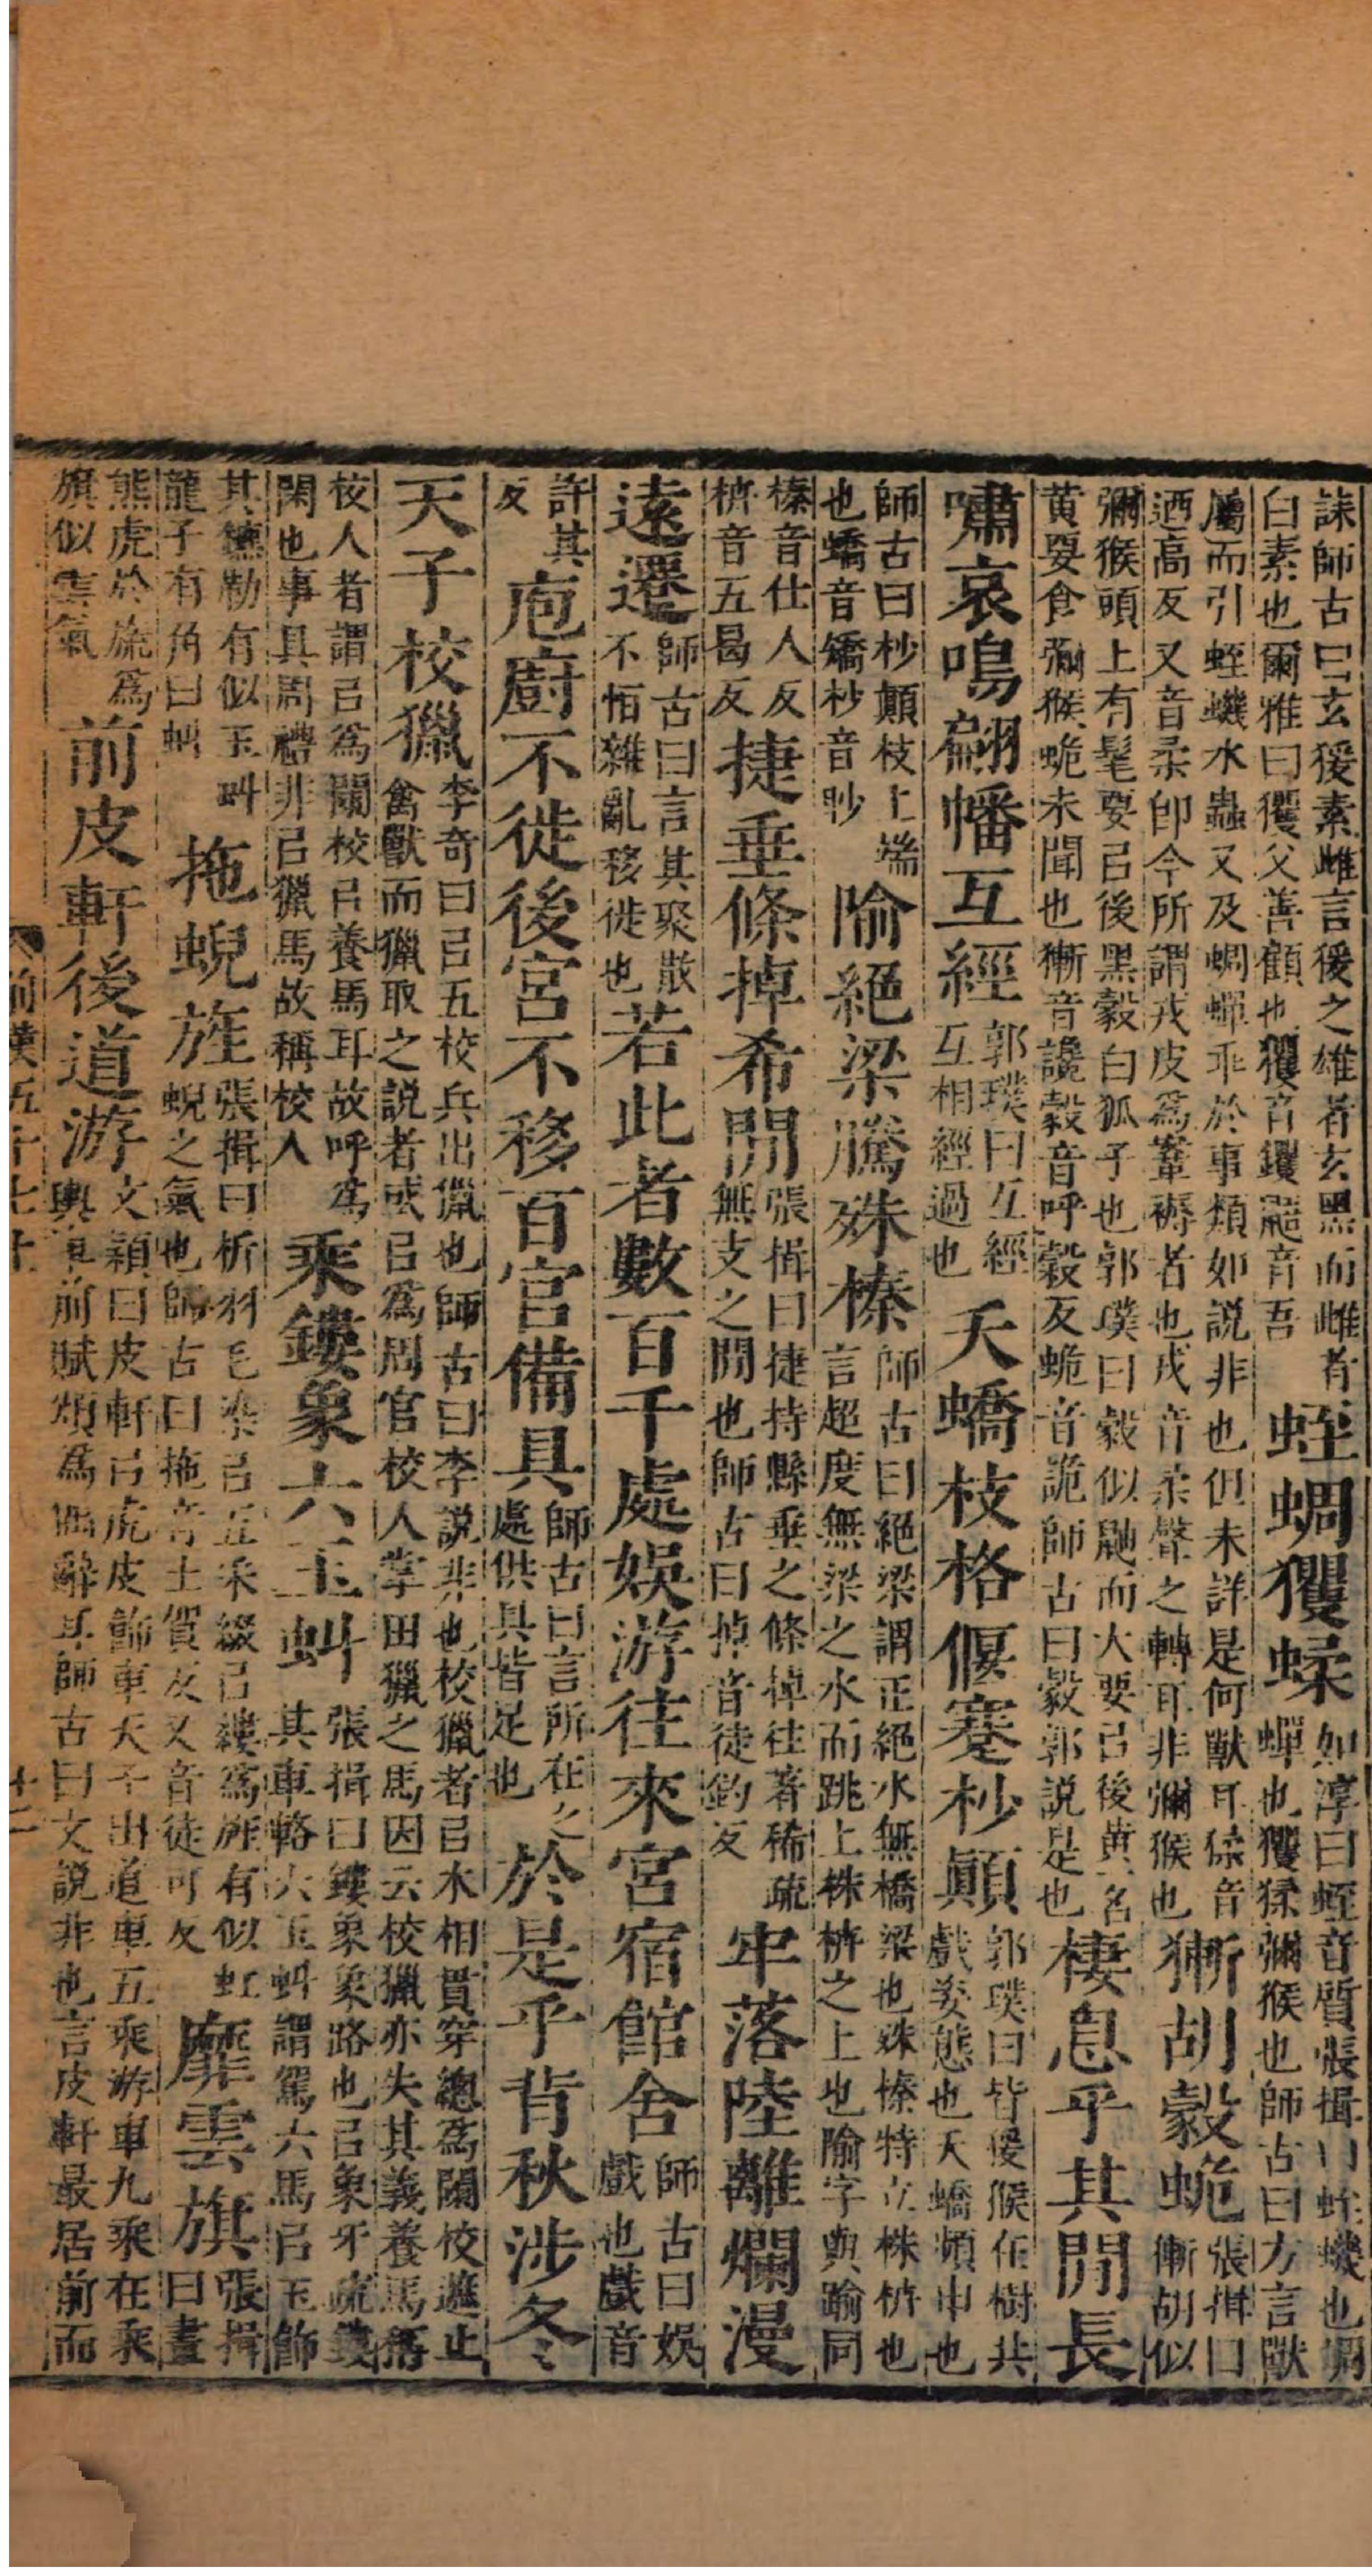 誄師古曰玄猨素雌言猨之雄者玄黑而雌者
白素也爾雅曰玃父善顧也玃音钁鼯音吾
蛭蜩玃蝚
如淳曰蛭音質張揖曰蛭蟣也蜩
蟬也玃猱獼猴也師古曰方言獸
屬而引蛭蟣水蟲又及蜩蟬乖於事類如説非也但未詳是何獸耳猱音
迺高反又音柔即今所謂戎皮爲鞌褥者也戎音柔聲之轉耳非獮猴也
獑胡豰蛫
張揖曰
獑胡似
獮猴頭上有髦要㠯後黑豰白狐子也郭璞曰豰似鼬而大要㠯後黄一名
黄要食獮猴蛫未聞也獑音讒豰音呼穀反蛫音詭師古曰豰郭説是也
棲息乎其閒長
嘯哀鳴翩幡互經
郭璞曰互經
互相經過也
夭蟜枝格偃蹇杪顛
郭璞曰皆猨猴在樹共
戲姿態也夭蟜頻申也
師古曰杪顛枝上端
也蟜音矯杪音眇
隃絕梁騰殊榛
師古曰絕梁謂正絕水無橋梁也殊榛特立株枿也
言超度無梁之水而跳上株枿之上也隃字與踰同
榛音仕人反
枿音五曷反
捷垂條掉希閒
張揖曰捷持縣垂之條掉往著稀疏
無支之閒也師古曰掉音徒釣反
牢落陸離爛漫
遠遷
師古曰言其聚散
不恒雜亂移徙也
若此者數百千處娛游往來宮宿館舍
師古曰娛
戲也戲音
許其
反
庖廚不徙後宮不移百官備具
師古曰言所在之
處供具皆足也
於是乎背秋涉冬
天子校獵
李奇曰㠯五校兵出獵也師古曰李説非也校獵者㠯木相貫穿總爲闌校遮止
禽獸而獵取之説者或㠯爲周官校人掌田獵之馬因云校獵亦失其義養馬稱
校人者謂㠯爲闌校㠯養馬耳故呼爲
閑也事具周禮非㠯獵馬故稱校人
乘鏤象六玉虯
張揖曰鏤象象路也㠯象牙疏鏤
其車輅六玉虯謂駕六馬㠯玉飾
其鑣勒有似玉虯
龍子有角曰虯
拖蜺旌
張揖曰析羽毛染㠯五采綴㠯縷爲旌有似虹
蜺之氣也師古曰拖音土賀反又音徒可反
靡雲旗
張揖
曰畫
熊虎於旒爲
旗似雲氣
前皮軒後道游
文穎曰皮軒㠯虎皮飾車天子出道車五乘游車九乘在乘
輿車前賦頌爲偶辭耳師古曰文説非也言皮軒最居前而
前漢五十七上
十二